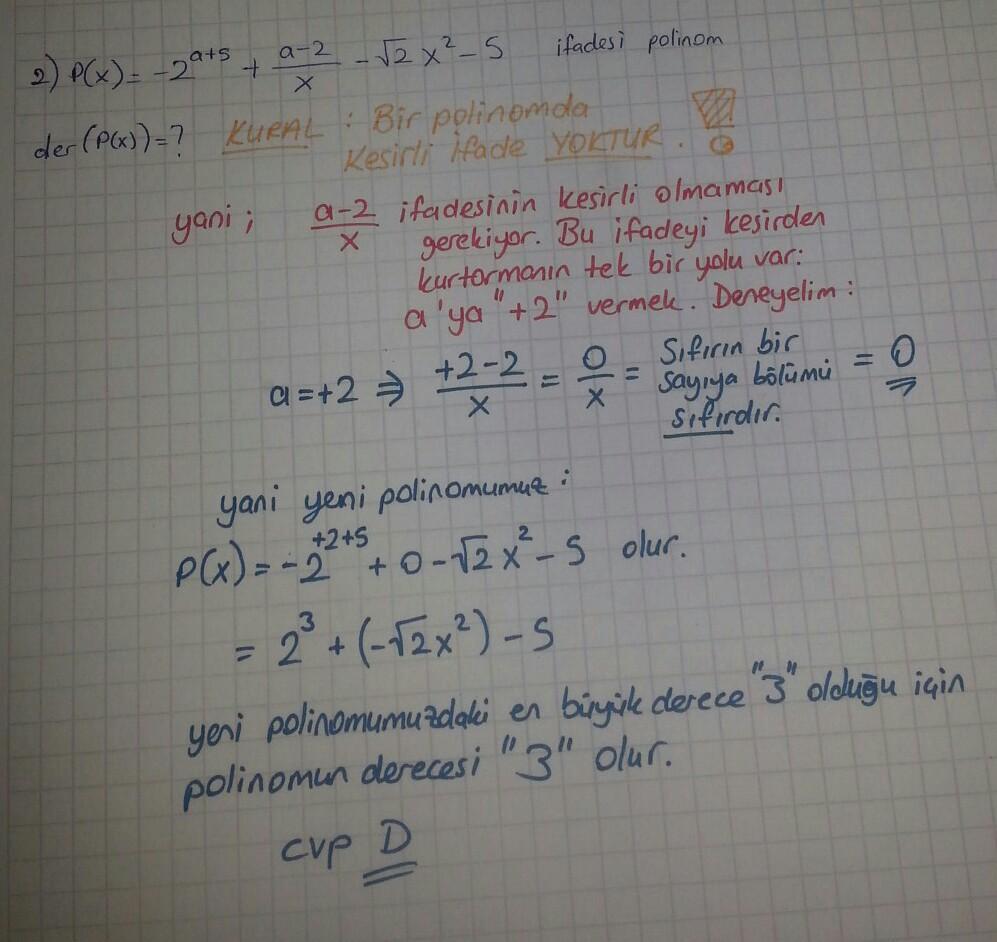 2) P(x) = -2^{a+5} + \frac{a-2}{x} - √2 x² - 5 ifadesi polinom
der (P(x)) = ? KURAL : Bir polinomda
Kesirli ifade YOKTUR. !
yani ; \frac{a-2}{x} ifadesinin kesirli olmaması
gerekiyor. Bu ifadeyi kesirden
kurtarmanın tek bir yolu var:
a'ya "+2" vermek. Deneyelim :
a=+2 ⇒ \frac{+2-2}{x} = \frac{0}{x} = Sıfırın bir sayıya bölümü sıfırdır. = 0
yani yeni polinomumuz :
P(x) = -2^{+2+5} + 0 - √2 x² - 5 olur.
= 2³ + (-√2x²) - 5
yeni polinomumuzdaki en büyük derece "3" olduğu için
polinomun derecesi "3" olur.
cvp D